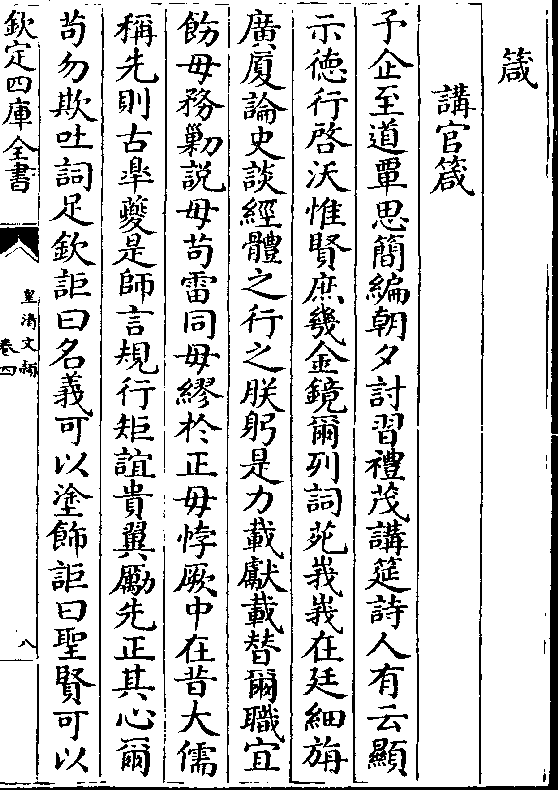 箴
講官箴
予企至道覃思簡編朝夕討習禮茂講筵詩人有云顯
示徳行啓沃惟賢庶幾金鏡爾列詞苑峩峩在廷細旃
廣厦論史談經體之行之朕躬是力載獻載替爾職宜
飭毋務勦説毋茍雷同毋繆於正毋悖厥中在昔大儒
稱先則古臯夔是師言規行矩誼貴翼勵先正其心爾
茍勿欺吐詞足欽詎曰名義可以塗飾詎曰聖賢可以
欽定四庫全書
皇清文穎
卷四
八